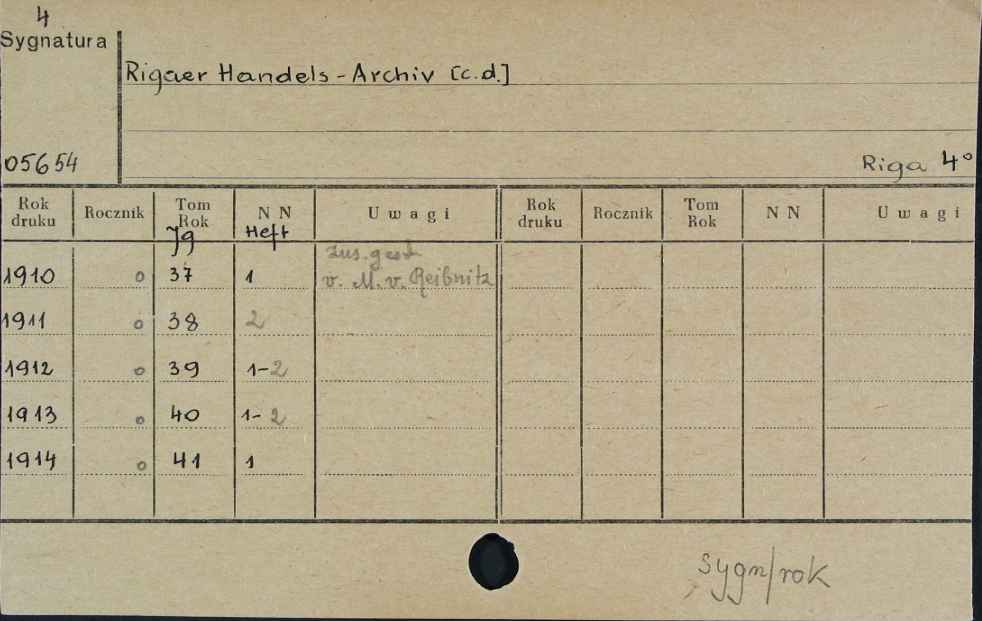 4
Sygnatura
Rigaer Handels-Archiv [c.d.]
05654
Riga 4°
Rok druku Rocznik Tom Rok N N U w a g i Rok druku Rocznik Tom Rok N N U w a g i
Jg Heft
zus.gest.
1910 o 37 1 v. M. v. Reibnitz
1911 o 38 2
1912 o 39 1-2
1913 o 40 1-2
1914 o 41 1
sygn/rok